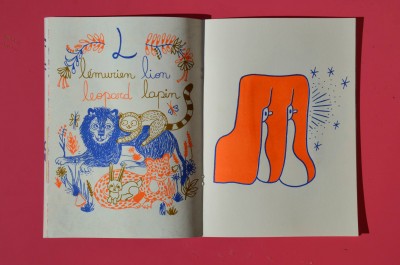 L
lémurien lion
leopard lapin